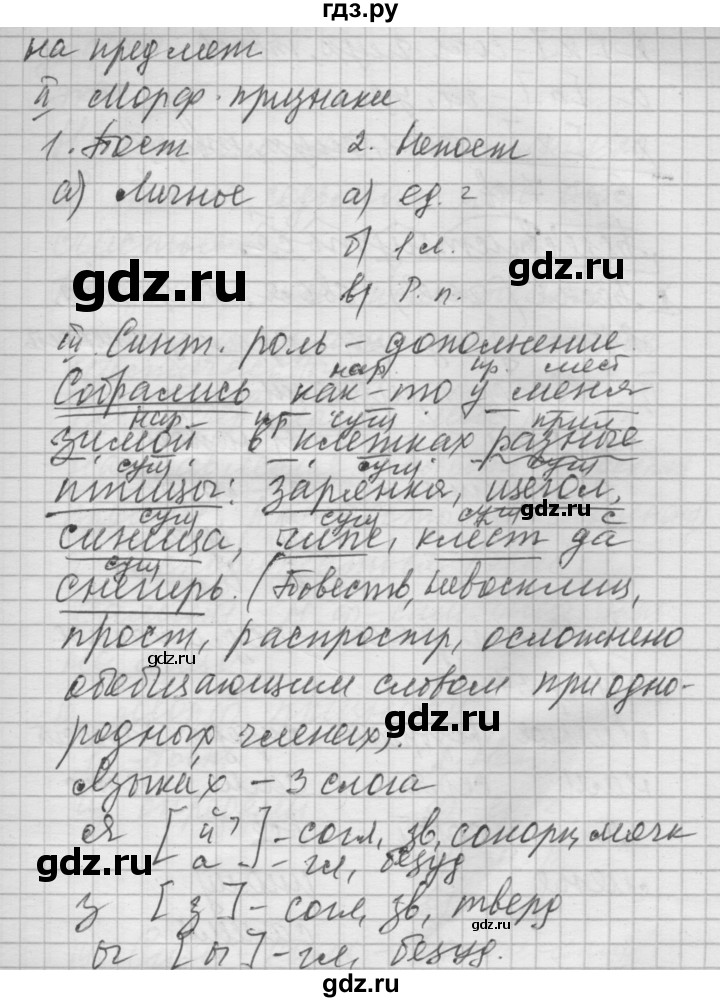 гдз.ру
на предмет
II Морф. признаки
1. Пост 2. Непост
а) Личное а) ед. ч
б) 1 л.
gdz.ru
gdz.ru
в) Р. п.
III. Синт. роль – дополнение.
нар. пр. мест
Собрались как-то у меня
нар пр сущ прил
зимой в клетках разные
сущ сущ сущ
птицы: зарянка, щегол,
сущ сущ сущ с
gdz.ru
синица, чиж, клёст да
сущ
снегирь. (Повеств, невосклиц,
прост, распростр, осложнено
gdz.ru
обобщающим словом при одно-
родных членах).
gdz.ru
Языка́х – 3 слога
я [й'] – согл, зв, сонорн, мягк
[а] – гл, безуд
gdz.ru
з [з] – согл, зв, тверд
ы [ы] – гл, безуд.
gdz.ru